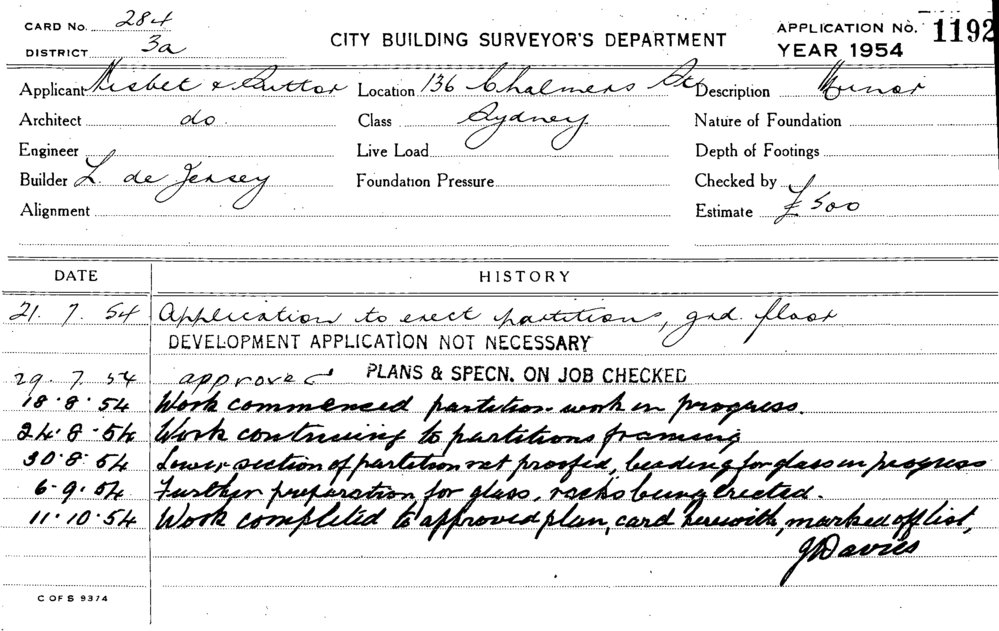 CARD No. 284
DISTRICT 3a
CITY BUILDING SURVEYOR'S DEPARTMENT
APPLICATION NO. 1192
YEAR 1954
Applicant Nisbet & Suttor Location 136 Chalmers St Description Minor
Architect do. Class Sydney Nature of Foundation
Engineer Live Load Depth of Footings
Builder L. de Jersey Foundation Pressure Checked by
Alignment Estimate £500
DATE HISTORY
21. 7. 54 Application to erect partitions, grd. floor
DEVELOPMENT APPLICATION NOT NECESSARY
29. 7. 54 approved PLANS & SPECN. ON JOB CHECKED
18.8.54 Work commenced partition work in progress.
24.8.54 Work continuing to partitions framing
30.8.54 Lower section of partition rat proofed, beading for glass in progress
6.9.54 Further preparation for glass, racks being erected.
11.10.54 Work completed to approved plan, card herewith, marked off list,
J Davies
C OF S 9374